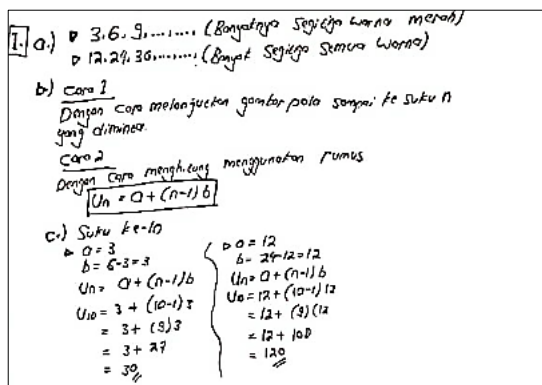 1. a.) ▷ 3, 6, 9, ........ (Banyaknya Segitiga warna merah)
▷ 12, 24, 36, ........ (Banyak Segitiga Semua warna)
b) Cara 1
Dengan cara melanjutkan gambar pola sampai ke suku n
yang diminta.
Cara 2
Dengan cara menghitung menggunakan rumus
Un = a + (n-1) b
c.) Suku ke-10
▷ a = 3
b = 6-3 = 3
Un = a + (n-1) b
U10 = 3 + (10-1) 3
= 3 + (9) 3
= 3 + 27
= 30
▷ a = 12
b = 24-12 = 12
Un = a + (n-1) b
U0 = 12 + (10-1) 12
= 12 + (9) (12
= 12 + 108
= 120